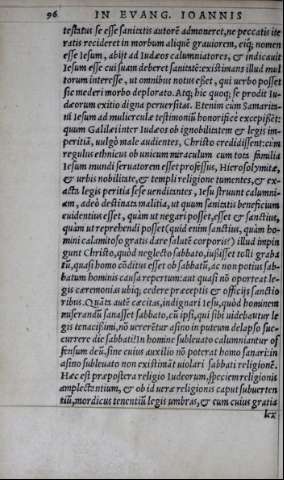 96 IN EVANG. IOANNIS
testatus se esse sanitatis autorē admoneret, ne peccatis ite
ratis recideret in morbum aliquē grauiorem, eiq; nomen
esse Iesum, abijt ad Iudæos calumniatores, & indicauit
Iesum esse cui suam deberet sanitatē: existimans illud mul
torum interesse, ut omnibus notus eßet, qui uerbo posset
sic mederi morbo deplorato. Atq; hic quoq; se prodit Iu-
dæorum exitio digna peruersitas. Etenim cùm Samarita-
ni Iesum ad mulierculæ testimoniū honorificè excepißēt:
quum Galilæi inter Iudæos ob ignobilitatem & legis im-
peritiā, uulgò male audientes, Christo credidissent: cùm
regulus ethnicus ob unicum miraculum cum tota familia
Iesum mundi seruatorem esset professus, Hierosolymitæ,
& urbis nobilitate, & templi religione tumentes, & ex-
acta legis peritia sese uenditantes, Iesu struunt calumni-
am, adeò destinata malitia, ut quum sanitatis beneficium
euidentius esset, quàm ut negari posset, esset & sanctius,
quàm ut reprehendi posset (quid enim sanctius, quàm ho-
mini calamitoso gratis dare salutē corporis?) illud impin
gunt Christo, quòd neglecto sabbato, iußisset tolli graba
tū, quasi homo cōditus esset ob sabbatū, ac non potius sab-
batum hominis causa repertum: aut quasi nō oporteat le-
gis cæremonias ubiq; cedere præceptis & officijs sanctio
ribus. Quāta autē cæcitas, indignari Iesu, quòd hominem
miserandū sanasset sabbato, cū ipsi, qui sibi uidebātur le-
gis tenacißimi, nō uererētur asino in puteum delapso suc-
currere die sabbati: In homine subleuato calumniantur of
fensum deū, sine cuius auxilio nō poterat homo sanari: in
asino subleuato non existimāt uiolari sabbati religionē.
Hæc est præpostera religio Iudæorum, speciem religionis
amplectentium, & id quod uerae religionis caput subuerten
tiū, mordicus tenentiū legis umbras, & eum cuius gratia
lex